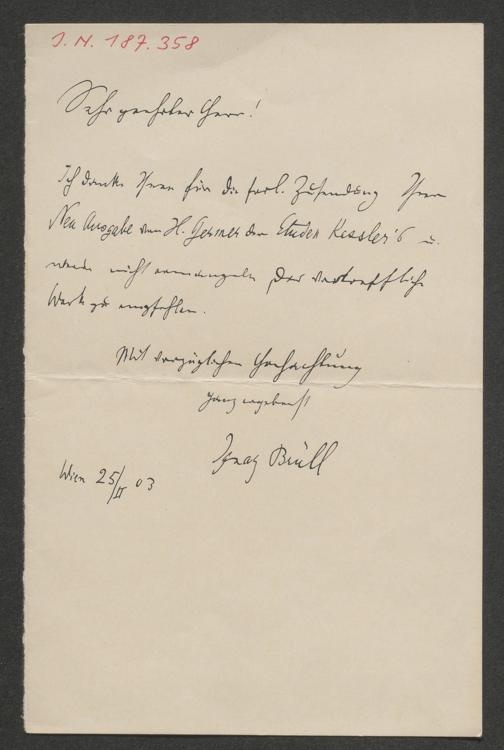 J. N. 187.358
Sehr geehrter Herr!
Ich danke Ihnen für die frdl. Zusendung Ihrer
Neu Ausgabe von H. Germer der Etuden Kessler's u.
werde nicht ermangeln das vortreffliche
Werk zu empfehlen.
Mit vorzüglicher Hochachtung
ganz ergebenst
Ignaz Brüll
Wien 25/II 03